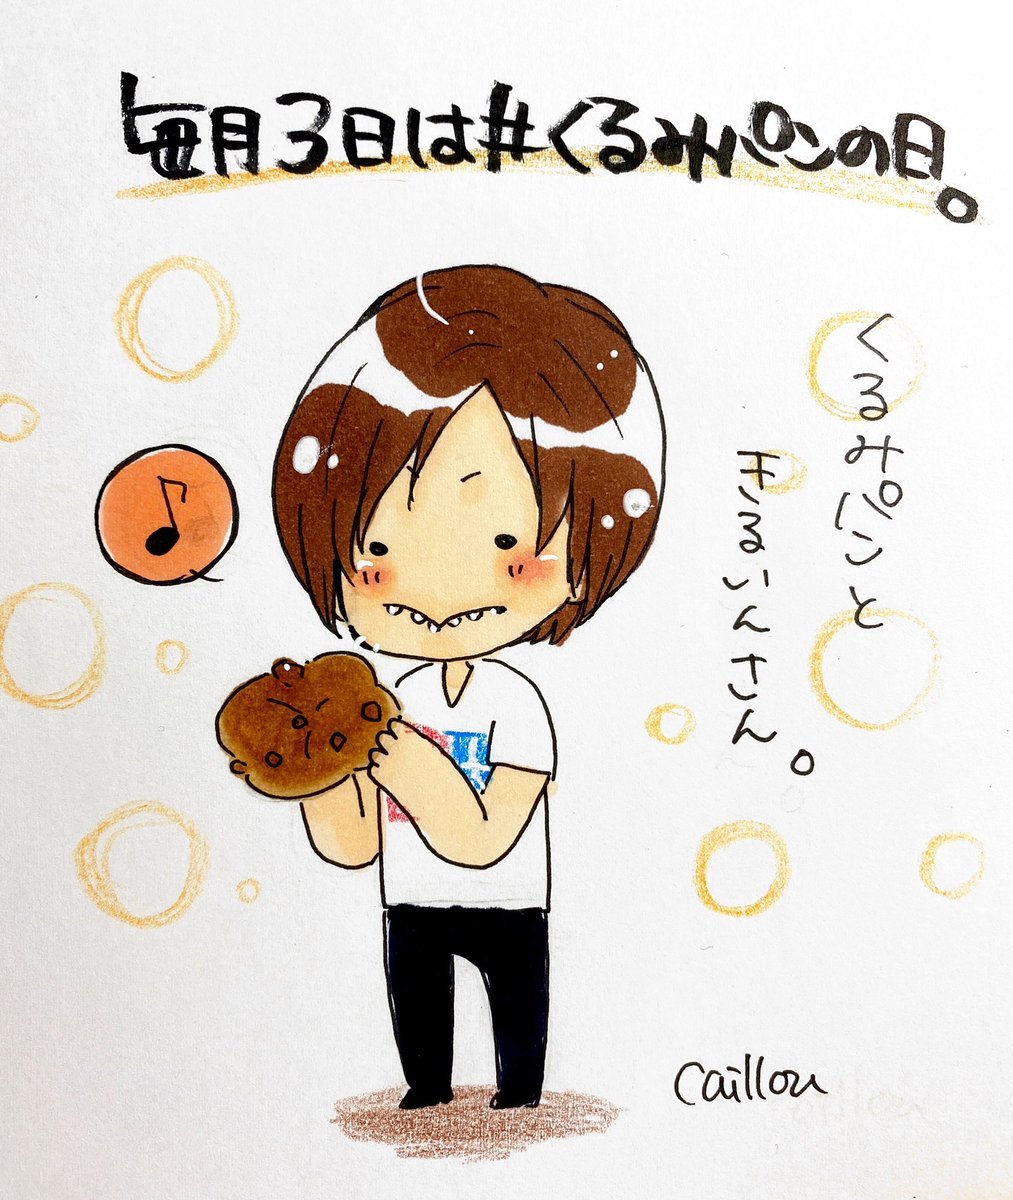 毎月3日は#くるみパンの日。
くるみパンと
きるいんさん。
caillou